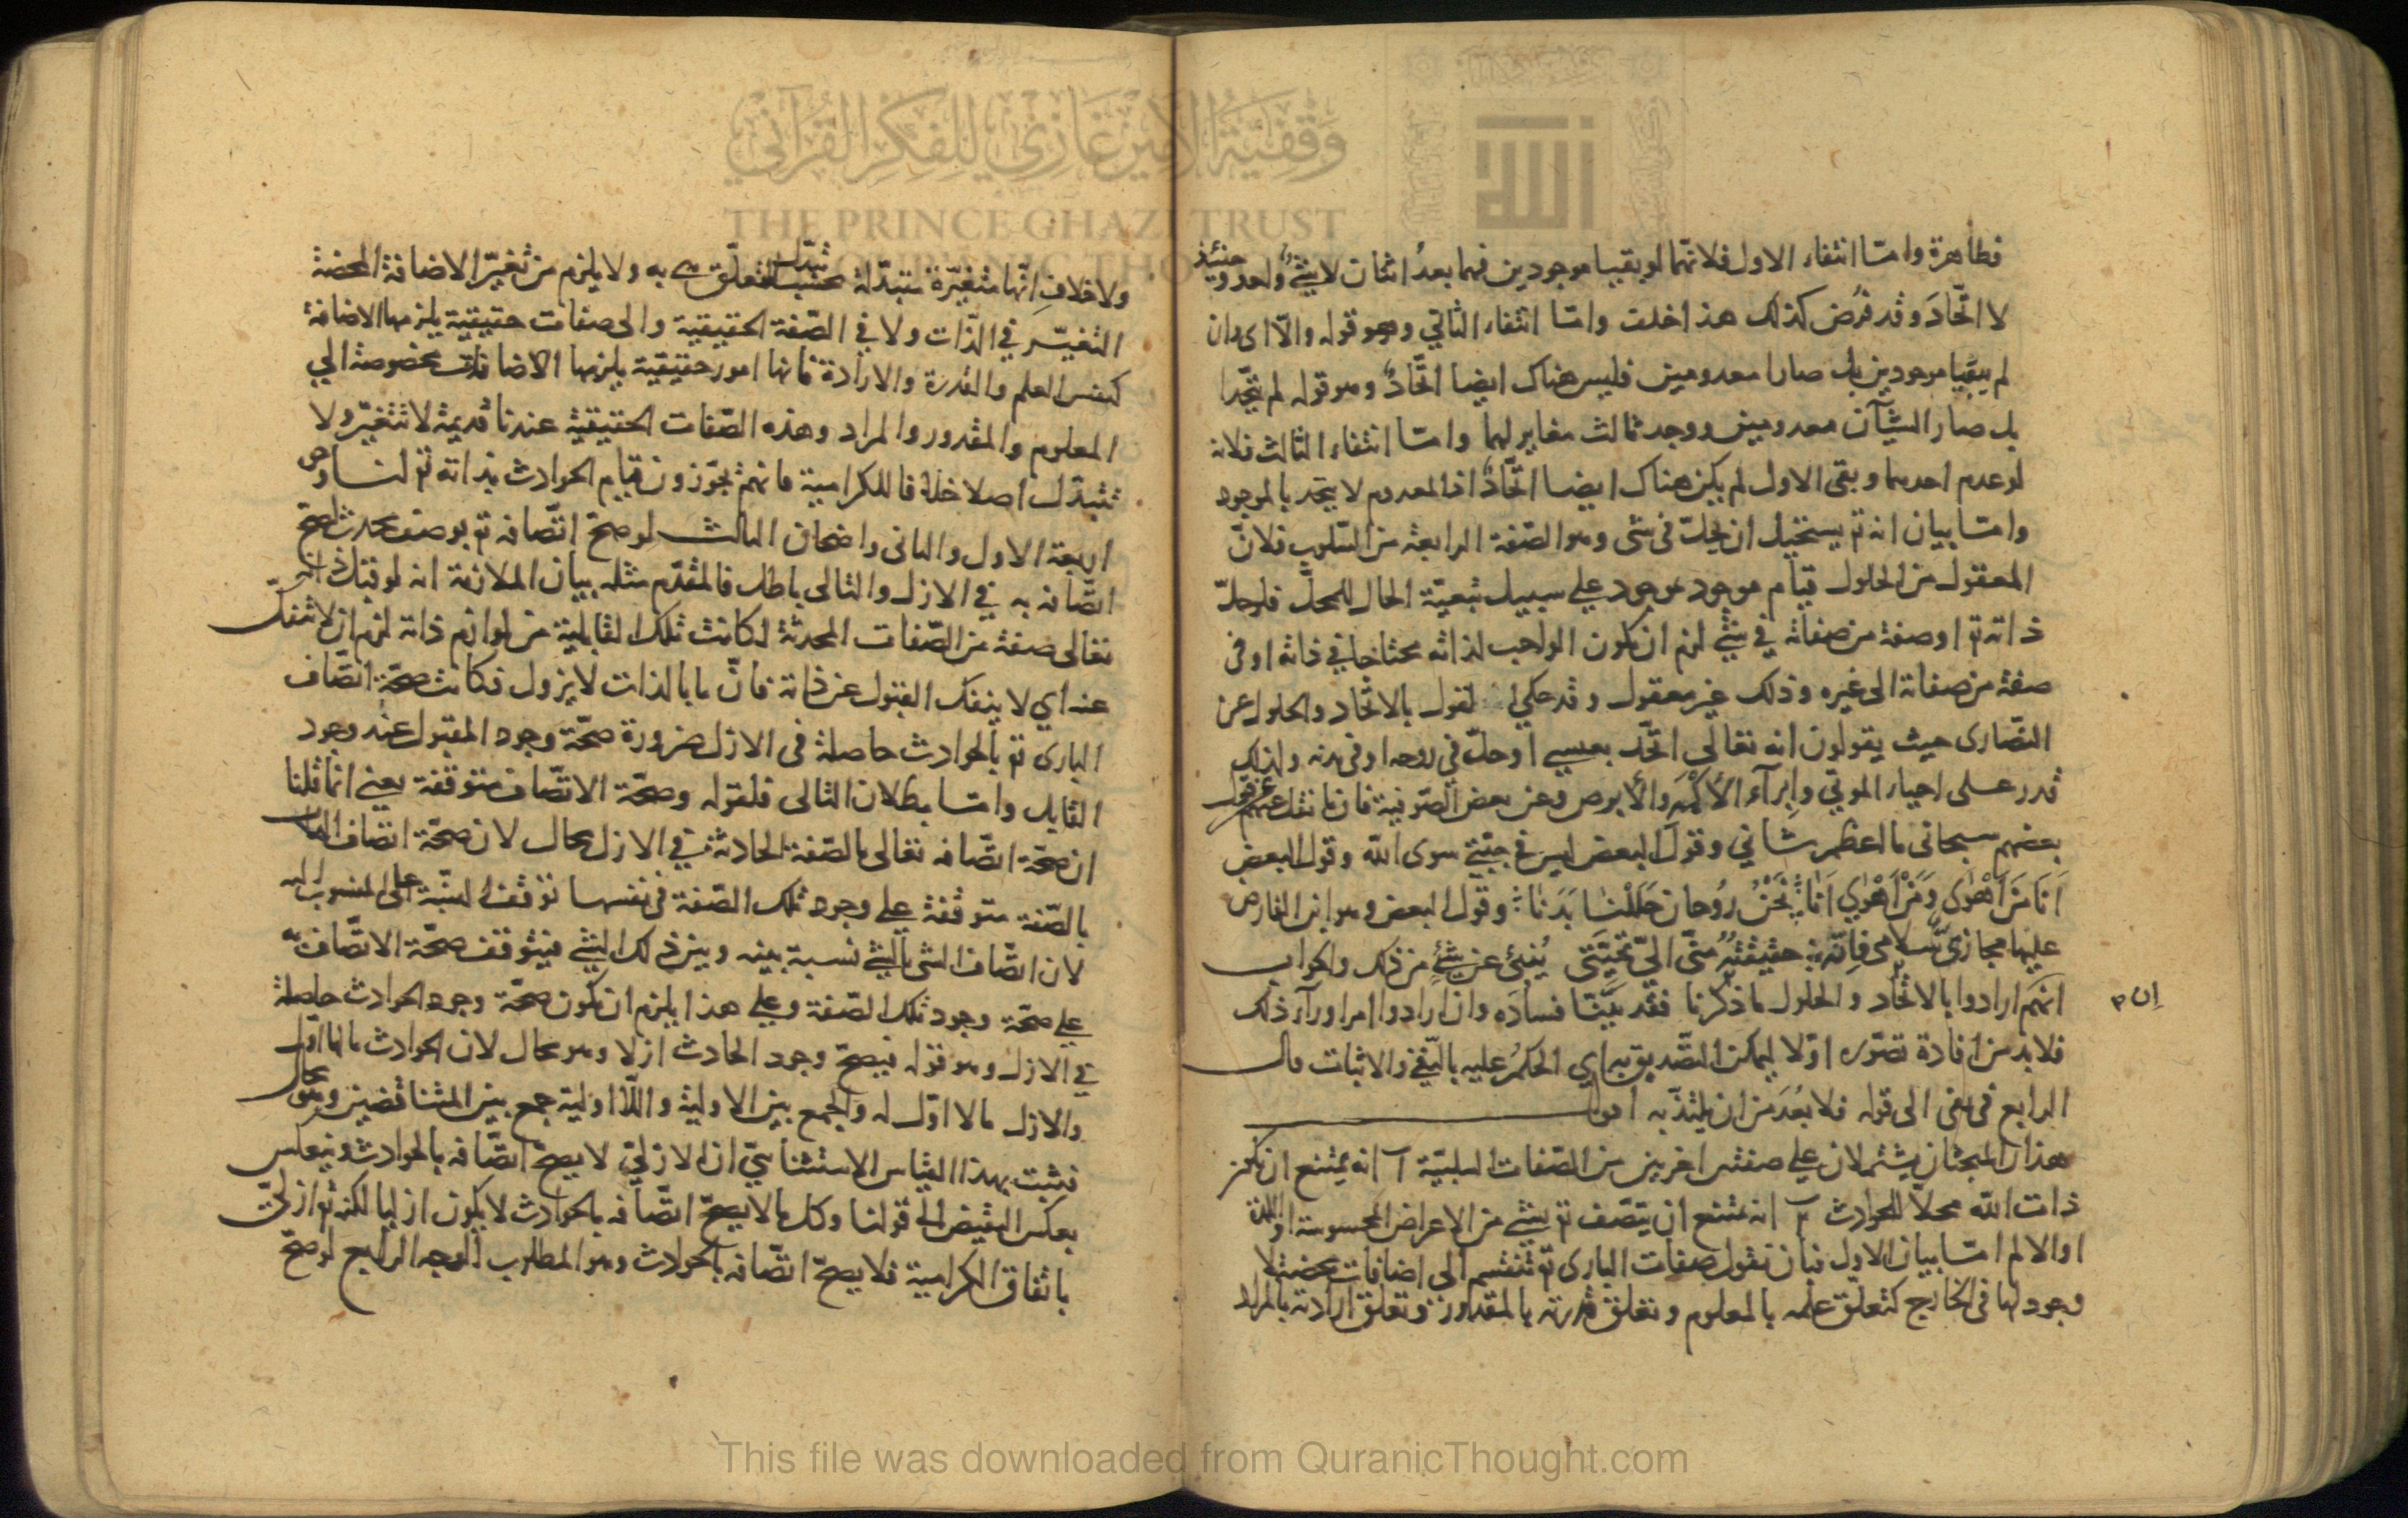 فظاهرة وامّا انتفاء الاول فلانّهما لو بقيا موجودين فهما بعدُ اثنان لا شئٌ واحد وحينئذ
لا اتّحادَ وقد فُرض كذلك هذا خلف وامّا انتفاء الثاني وهو قوله والّا اى وان
لم يبقيا موجودين بل صارا معدومين فليس هناك ايضا اتّحادٌ وهو قوله لم يتّحدا
بل صار الشيآن معدومين ووجد ثالث مغاير لهما وامّا انتفاء الثالث فلانه
لو عدم احدهما وبقى الاول لم يكن هناك ايضا اتّحادٌ اذ المعدوم لا يتحد بالموجود
وامّا بيان انه تع يستحيل ان يحلّ فى شئ وهو الصّفة الرابعة من السّلوب فلانّ
المعقول من الحلول قيام موجود بموجود على سبيل تبعيّة الحال للمحلّ فلو حلّ
ذاته تع او صفة من صفاته في شئ لزم ان يكون الواجب لذاته محتاجا في ذاته او فى
صفة من صفاته الى غيره وذلك غير معقول وقد حكي القول بالاتّحاد والحلول عن
النّصارى حيث يقولون انه تعالى اتّحد بعيسى او حلّ في روحه او فى بدنه ولذلك
قدر على احياء الموتي وابرآء الأكمه والأبرص وعن بعض الصّوفية فان ما نقل عنهم نحو قول
بعضهم سبحانى ما اعظم شاني وقول البعض ليس في جبّتي سوى الله وقول البعض
اَنَا مَنْ اَهْوٰى وَمَنْ اَهْوٰى اَنَا نَحْنُ رُوحَان حَلَلْنَا بَدَنَا وقول البعض وهو ابن الفارض
عليها مجازىّ سلامى فانّما حقيقته منّى الىّ تحيّتى يُنبئ عن شئ من ذلك والجواب
انهم ارادوا بالاتّحاد والحلول ما ذكرنا فقد بيّنّا فسادَه وان ارادوا امرا ورآء ذلك
ان م
فلا بد من افادة تصوّره اوّلا ليمكن التّصديق به اى الحكمُ عليه بالنّفى والاثبات قال
الرابع فى نفى الى قوله فلا بُعدَ من ان يلتذّ به اقول
هذان المبحثان يشتملان على صفتين اخريين من الصّفات السلبيّة آ انه يمتنع ان يكون
ذات الله محلّا للحوادث ب انه يمتنع ان يتّصف تع بشئ من الاعراض المحسوسة او اللذة
او الالم امّا بيان الاول فبان نقول صفات البارى تع تنقسم الى اضافات محضة لا
وجود لها فى الخارج كتعلّق علمه بالمعلوم وتعلق قدرته بالمقدور وتعلق ارادته بالمراد
ولا خلاف انّها متغيّرة متبدّلة بحسب تبدّل المتعلّق به ولا يلزم من تغيّر الاضافة المحضة
التغيّر في الذّات ولا في الصّفة الحقيقية والى صفات حقيقية يلزمها الاضافة
كنفس العلم والقدرة والارادة فانها امور حقيقية يلزمها الاضافات مخصوصة الى
المعلوم والمقدور والمراد وهذه الصّفات الحقيقية عندنا قديمة لا تتغيّر ولا
تتبدّل اصلا خلافا للكرامية فانهم يجوّزون قيام الحوادث بذاته تع لنا وجوه
اربعة الاول والثانى واضحان الثالث لو صحّ اتّصافه تع بوصف محدث لصحّ
اتّصافه به في الازل والتالى باطل فالمقدّم مثله بيان الملازمة انه لو قبل ذاته
تعالى صفة من الصّفات المحدثة لكانت تلك القابلية من لوازم ذاته لزم ان لا تنفكّ
عنه اي لا ينفك القبول عن ذاته فانّ ما بالذات لا يزول فكانت صحّة اتّصاف
البارى تع بالحوادث حاصلة فى الازل ضرورة صحّة وجود المقبول عند وجود
القابل وامّا بطلان التالى فلقوله وصحّة الاتّصاف متوقفة يعنى انّما قلنا
ان صحّة اتّصافه تعالى بالصّفة الحادثة في الازل محال لان صحّة اتّصاف الذات
بالصّفة متوقفة على وجود تلك الصّفة فى نفسها توقف النسبة على المنسوب اليه
لان اتّصاف الشى بالشئ نسبة بينه وبين ذلك الشئ فيتوقف صحّة الاتّصاف به
على صحّة وجود تلك الصّفة وعلى هذا يلزم ان يكون صحّة وجود الحوادث حاصلة
في الازل وهو قوله فيصحّ وجود الحادث ازلا وهو محال لان الحوادث ما لها اوّل
والازل ما لا اوّل له والجمع بين الاولية واللّااولية جمع بين المتناقضين وهو محال
فثبت بهذا القياس الاستثنائيّ ان الازليّ لا يصحّ اتّصافه بالحوادث وينعكس
بعكس النقيض الى قولنا وكل ما لا يصحّ اتّصافه بالحوادث لا يكون ازليا لكنه تع ازلىّ
باتفاق الكرامية فلا يصحّ اتّصافه بالحوادث وهو المطلوب الوجه الرابع لو صحّ
وقفية الأمير غازي للفكر القرآني
THE PRINCE GHAZI TRUST
This file was downloaded from QuranicThought.com